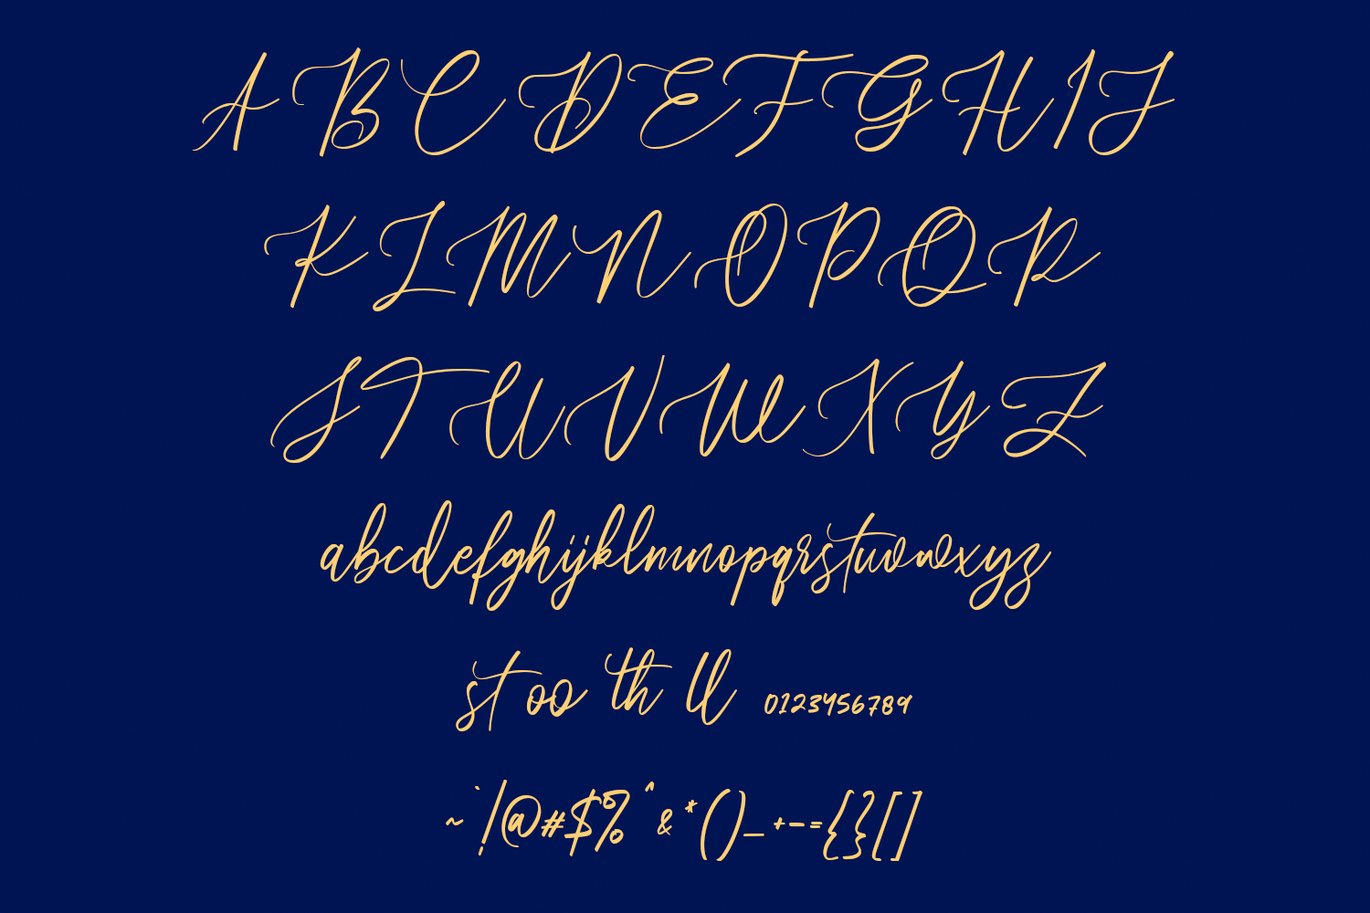 A B C D E F G H I J
K L M N O P Q R
S T U V W X Y Z
abcdefghijklmnopqrstuvwxyz
st oo th ll 0123456789
~ ` ! @ # $ % ^ & * ( ) _ + - = { } [ ]